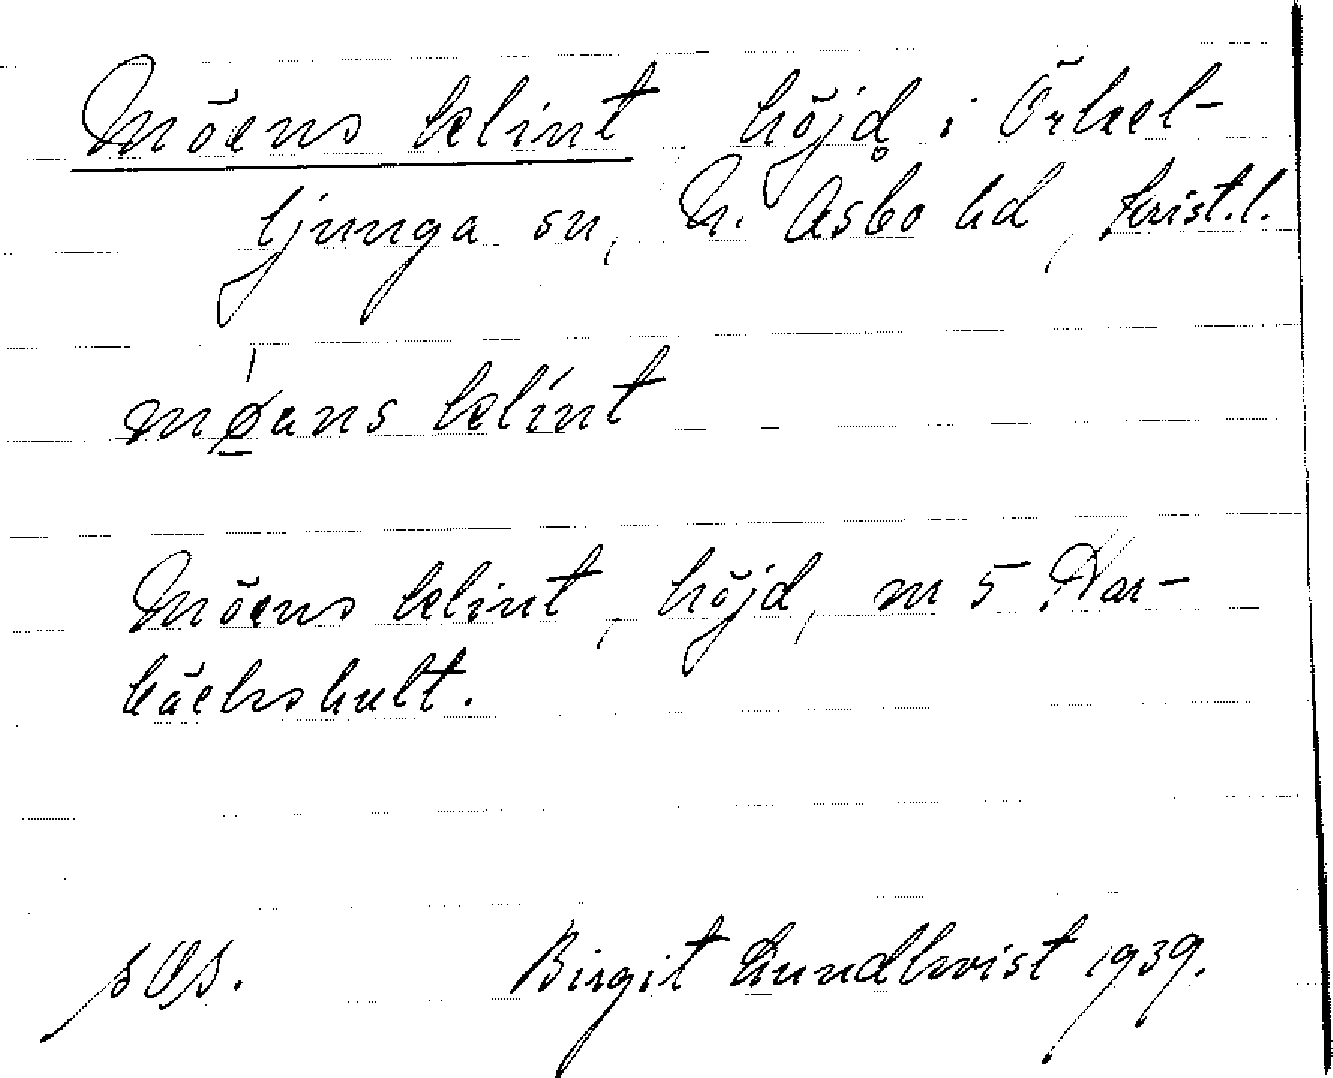 Möens klint höjd i Örkel-
ljunga sn, N. Åsbo hd, Krist.l.
mø̱ans klínt
Möens klint, höjd, m 5 Har-
bäckshult.
Birgit Lundkvist 1939.